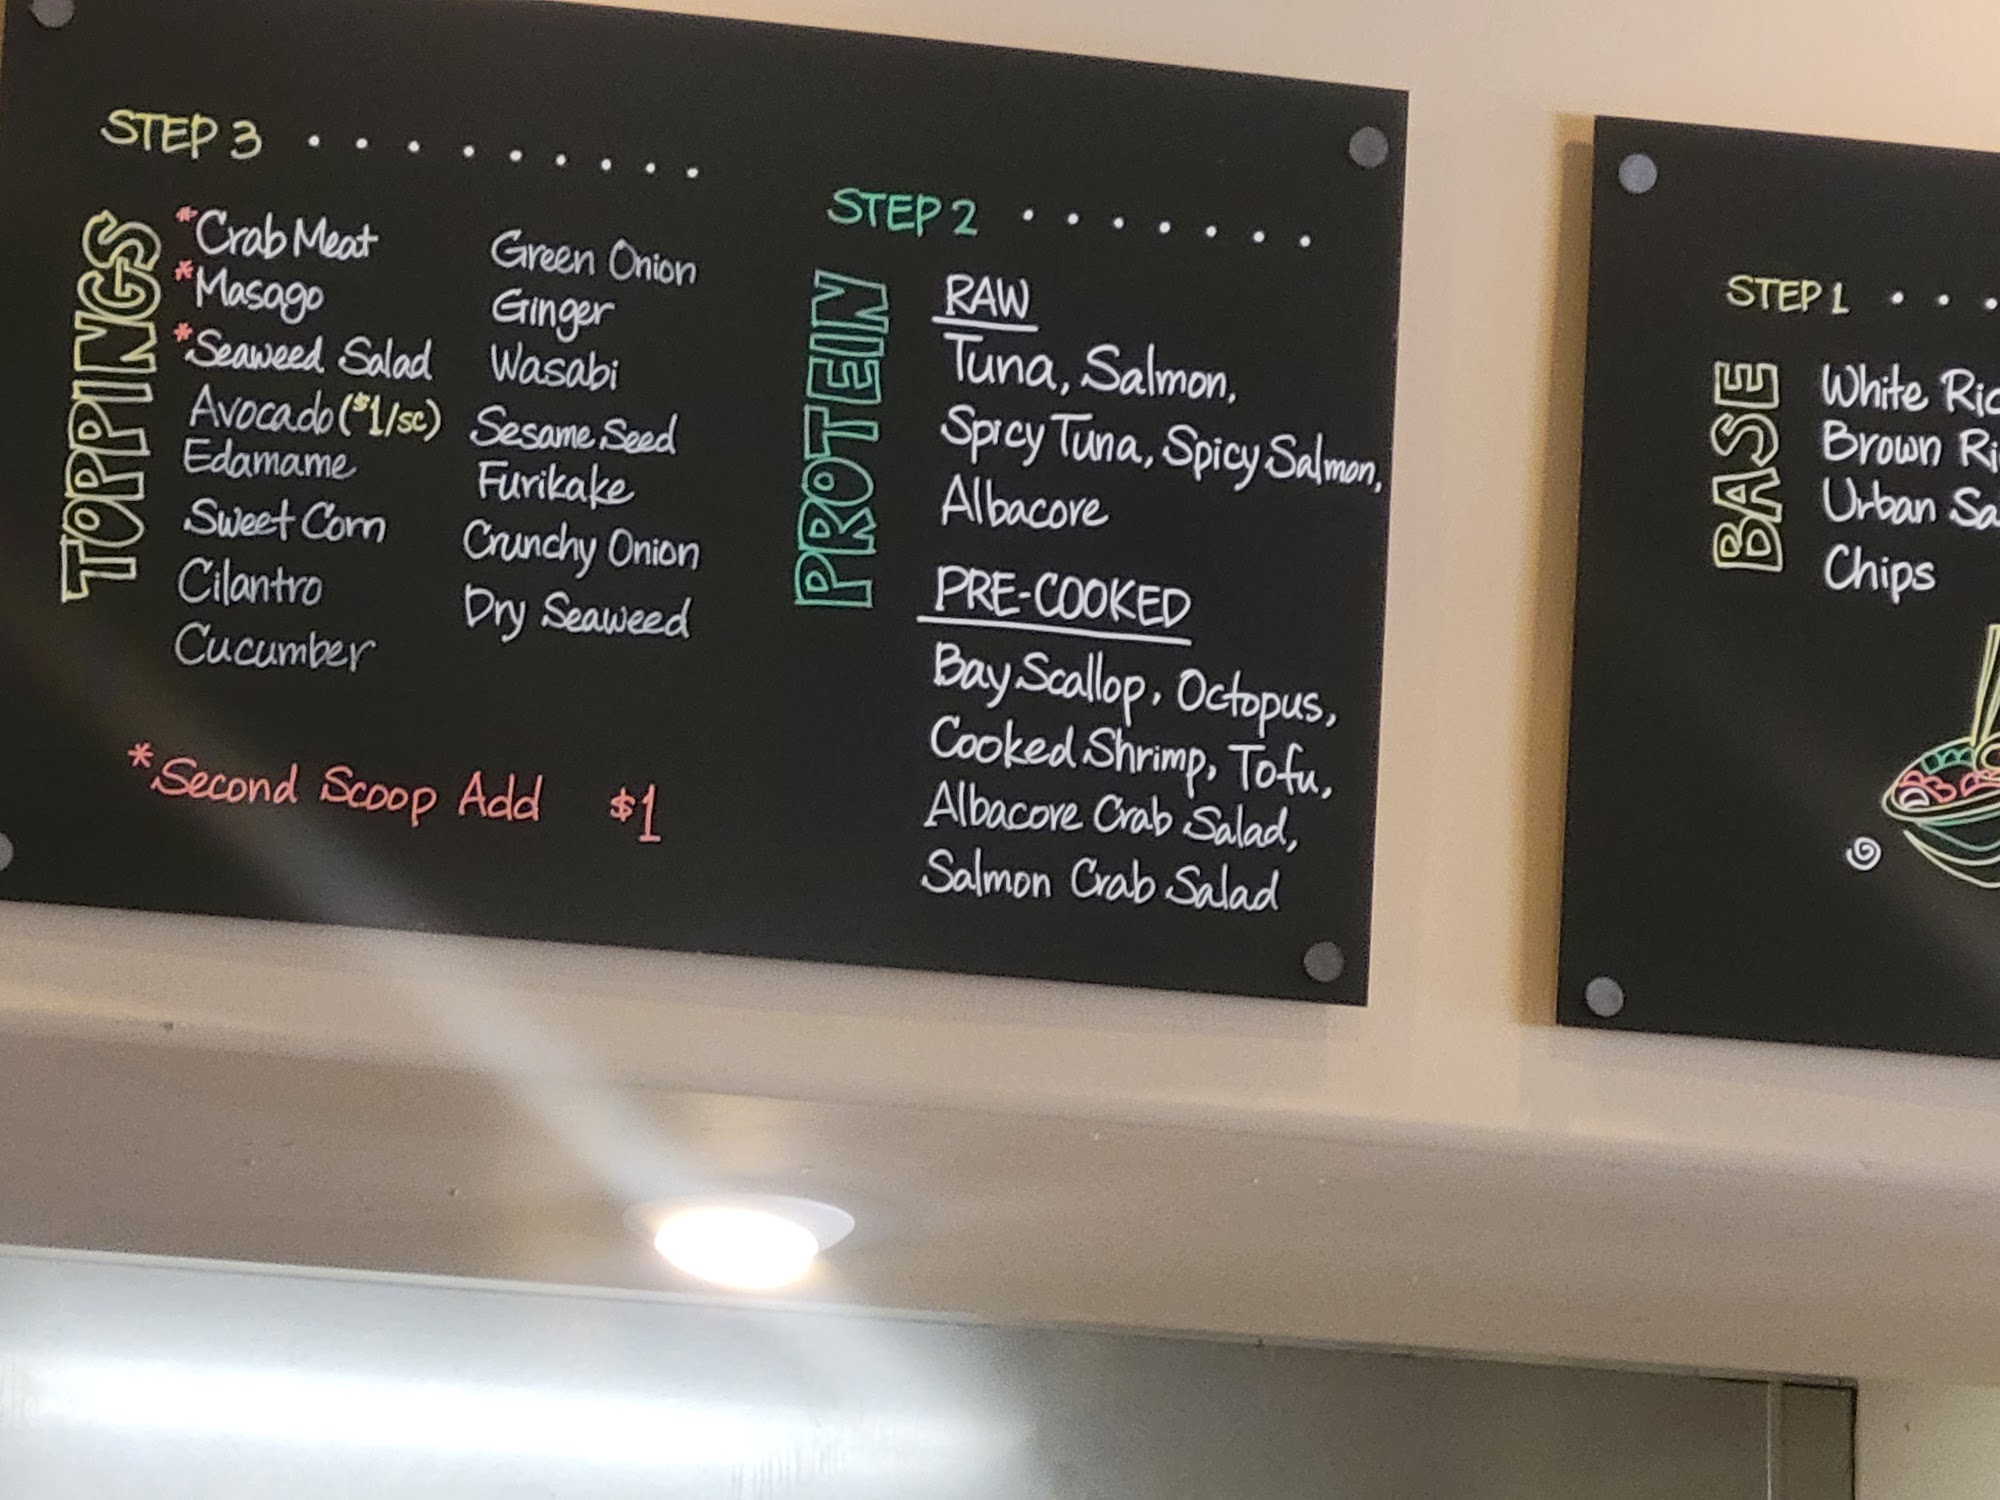 STEP 3
TOPPINGS
*Crab Meat
*Masago
*Seaweed Salad
Avocado ($1/sc)
Edamame
Sweet Corn
Cilantro
Cucumber
Green Onion
Ginger
Wasabi
Sesame Seed
Furikake
Crunchy Onion
Dry Seaweed
*Second Scoop Add $1
STEP 2
PROTEIN
RAW
Tuna, Salmon,
Spicy Tuna, Spicy Salmon,
Albacore
PRE-COOKED
Bay Scallop, Octopus,
Cooked Shrimp, Tofu,
Albacore Crab Salad,
Salmon Crab Salad
STEP 1
BASE
White
Brown
Urban
Chips